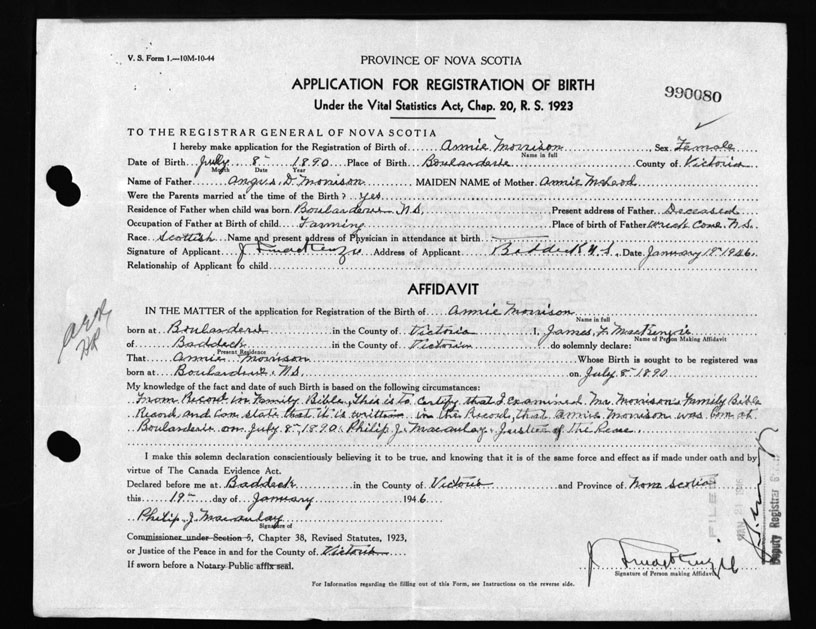 V. S. Form 1.—10M-10-44
PROVINCE OF NOVA SCOTIA
APPLICATION FOR REGISTRATION OF BIRTH
990080
Under the Vital Statistics Act, Chap. 20, R. S. 1923
TO THE REGISTRAR GENERAL OF NOVA SCOTIA
I hereby make application for the Registration of Birth of Annie Morrison Sex Female
Name in full
Date of Birth July 8th 1890 Place of Birth Boularderie County of Victoria
Month Date Year
Name of Father Angus D. Morrison MAIDEN NAME of Mother Annie McLeod
Were the Parents married at the time of the Birth? yes
Residence of Father when child was born Boularderie N.S. Present address of Father Deceased
Occupation of Father at Birth of child Farming Place of birth of Father Cove N.S.
Race Scottish Name and present address of Physician in attendance at birth
Signature of Applicant J. F. MacKenzie Address of Applicant Baddeck N.S. Date January 19th 1946
Relationship of Applicant to child
AFFIDAVIT
IN THE MATTER of the application for Registration of the Birth of Annie Morrison
Name in full
born at Boularderie in the County of Victoria I, James F. MacKenzie
Name of Person Making Affidavit
of Baddeck in the County of Victoria do solemnly declare:
Present Residence
That Annie Morrison Whose Birth is sought to be registered was
born at Boularderie N.S. on July 8th 1890
My knowledge of the fact and date of such Birth is based on the following circumstances:
From Record in Family Bible, This is to certify that I examined Mr. Morrison's Family Bible
Record, and can state that it is written in the Record, that Annie Morrison was born at
Boularderie on July 8th 1890. Philip J. Macaulay. Justice of the Peace.
I make this solemn declaration conscientiously believing it to be true, and knowing that it is of the same force and effect as if made under oath and by
virtue of The Canada Evidence Act.
Declared before me at Baddeck in the County of Victoria and Province of Nova Scotia
this 19th day of January 1946
Philip J. Macaulay
Signature of
Commissioner under Section 5, Chapter 38, Revised Statutes, 1923,
or Justice of the Peace in and for the County of Victoria
If sworn before a Notary Public affix seal.
J. F. MacKenzie
Signature of Person making Affidavit
For Information regarding the filling out of this Form, see Instructions on the reverse side.
FILED
Deputy Registrar